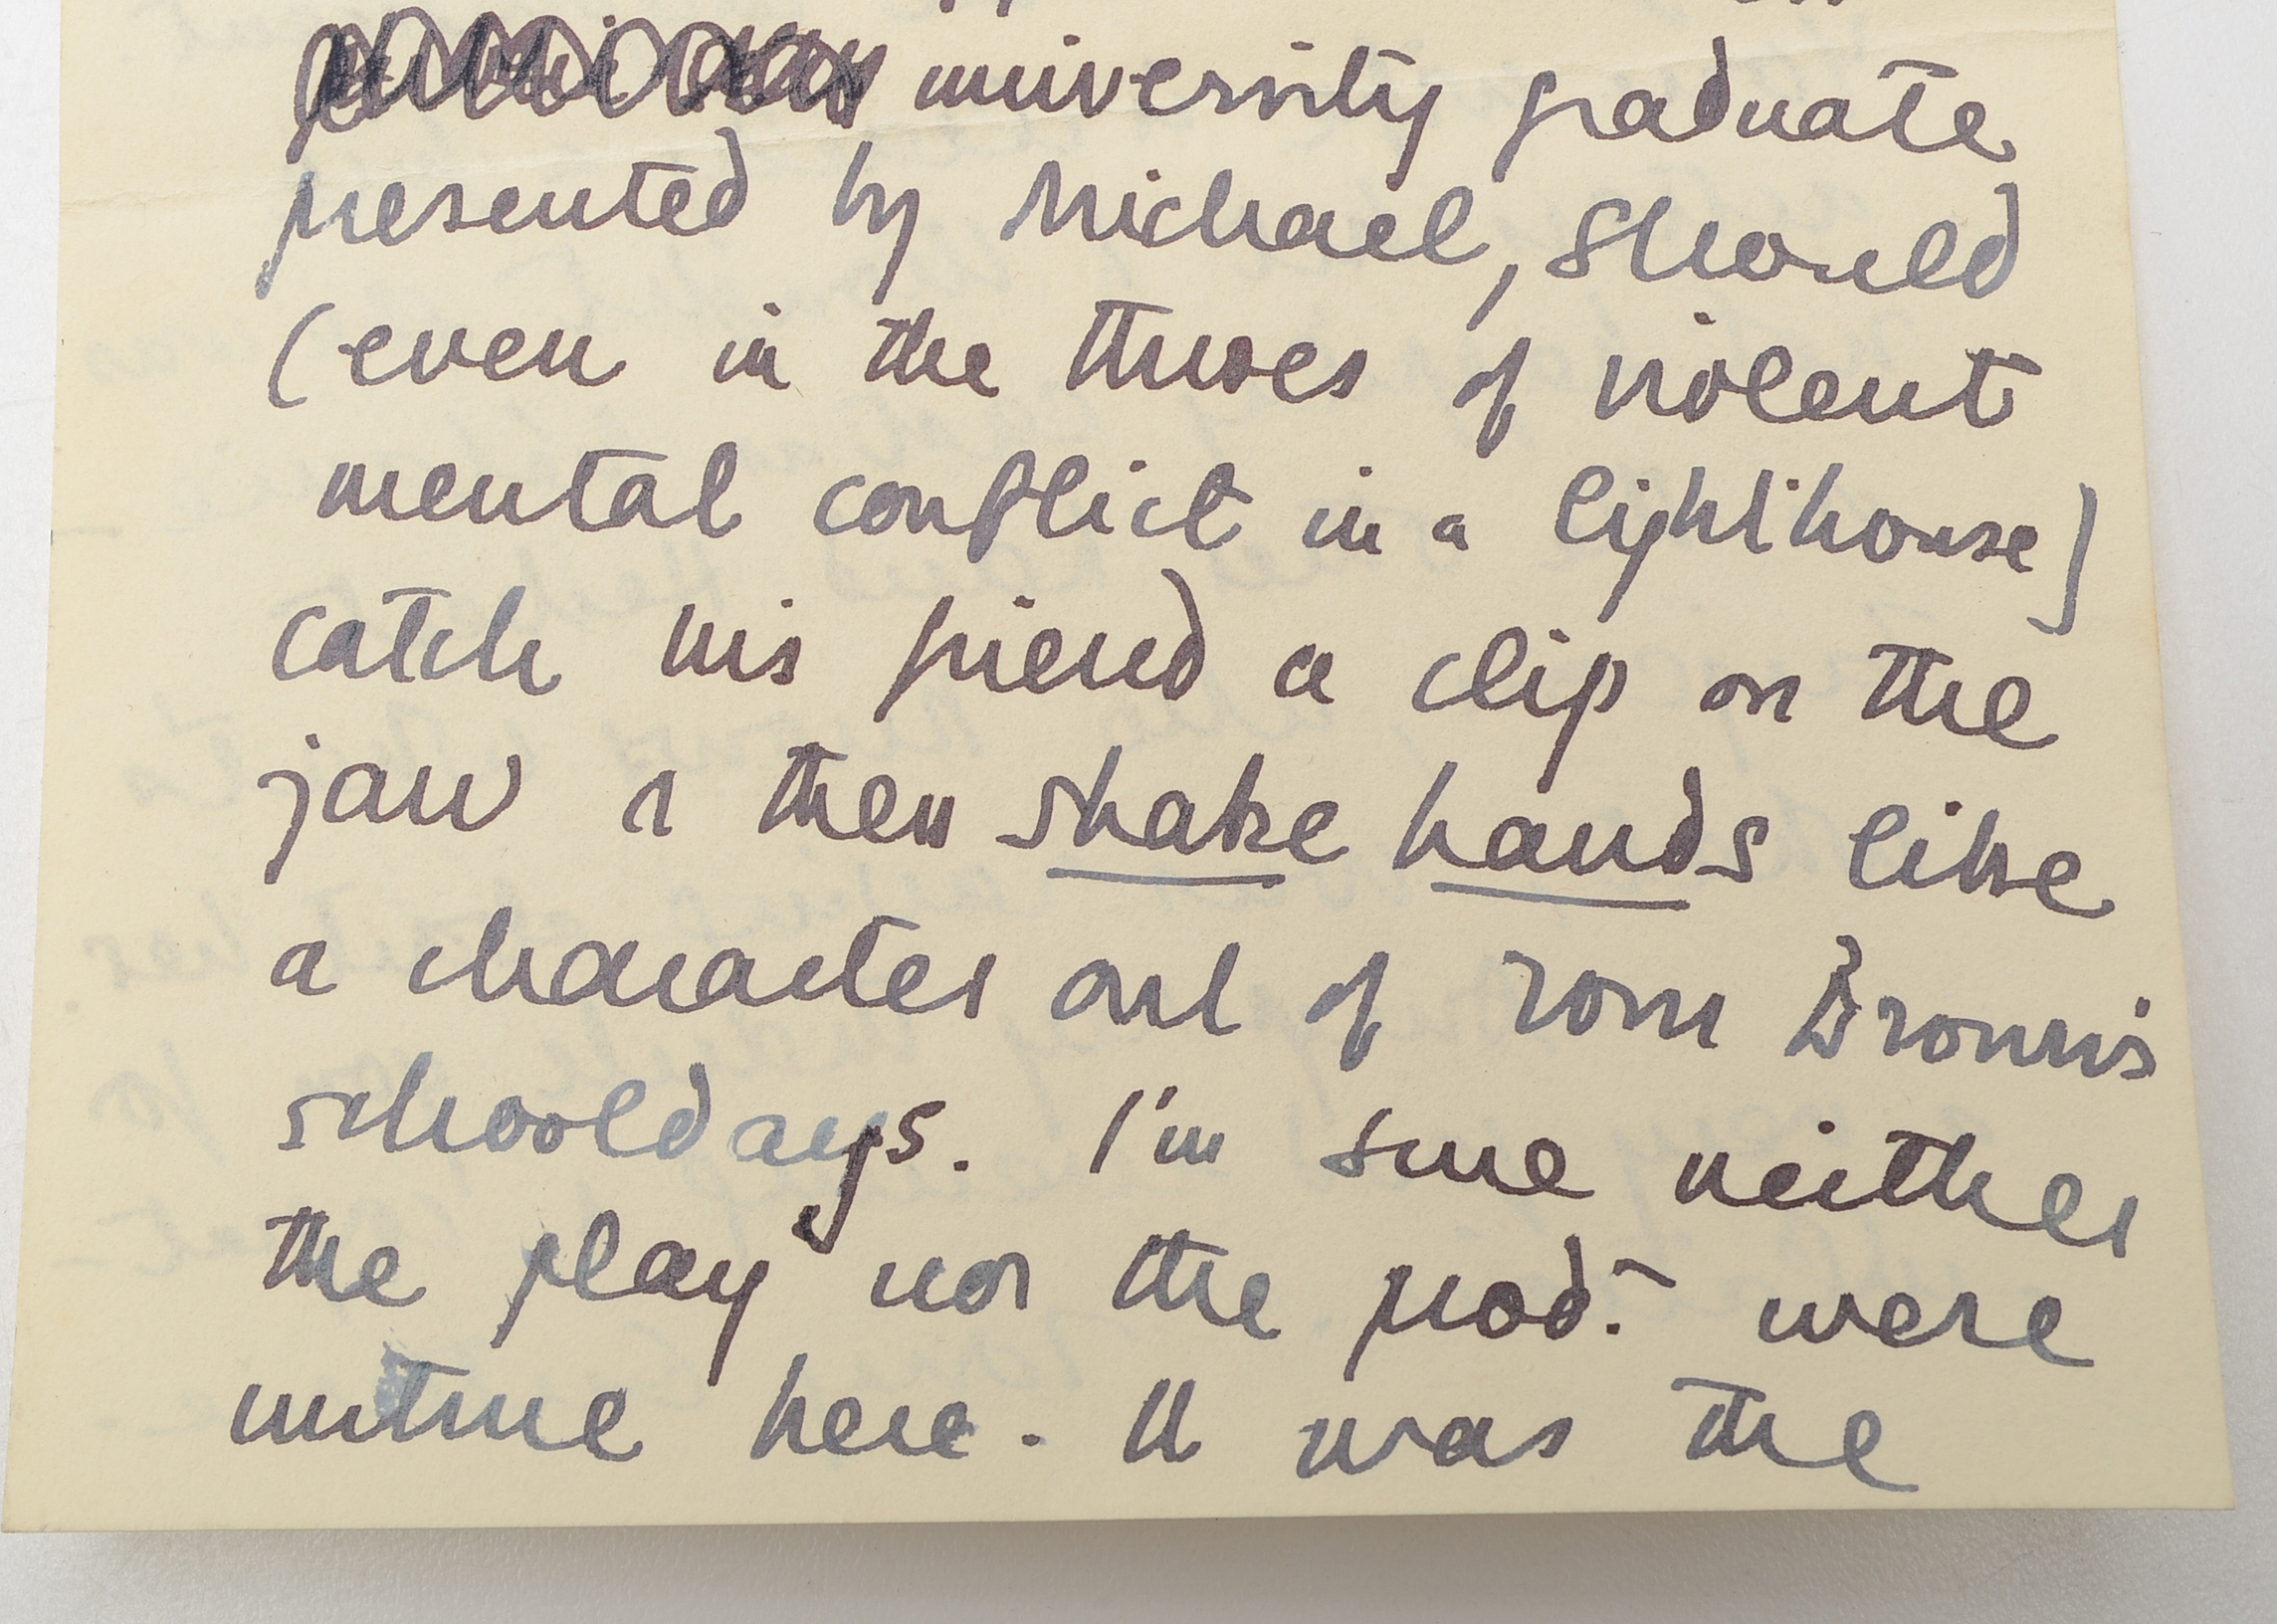 university graduate
presented by Michael, should
(even in the throes of violent
mental conflict in a lighthouse)
catch his friend a clip on the
jaw & then shake hands like
a character out of Tom Brown's
schooldays. I'm sure neither
the play nor the prod. were
untrue here. It was the